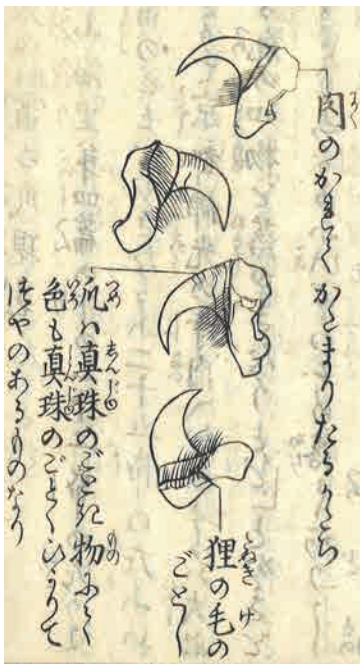 肉のかれてかたまりたるかたち
狸の毛の
ごとし
爪ハ真珠のごとき物にて
色も真珠のごとくひかりて
つやのあるものなり